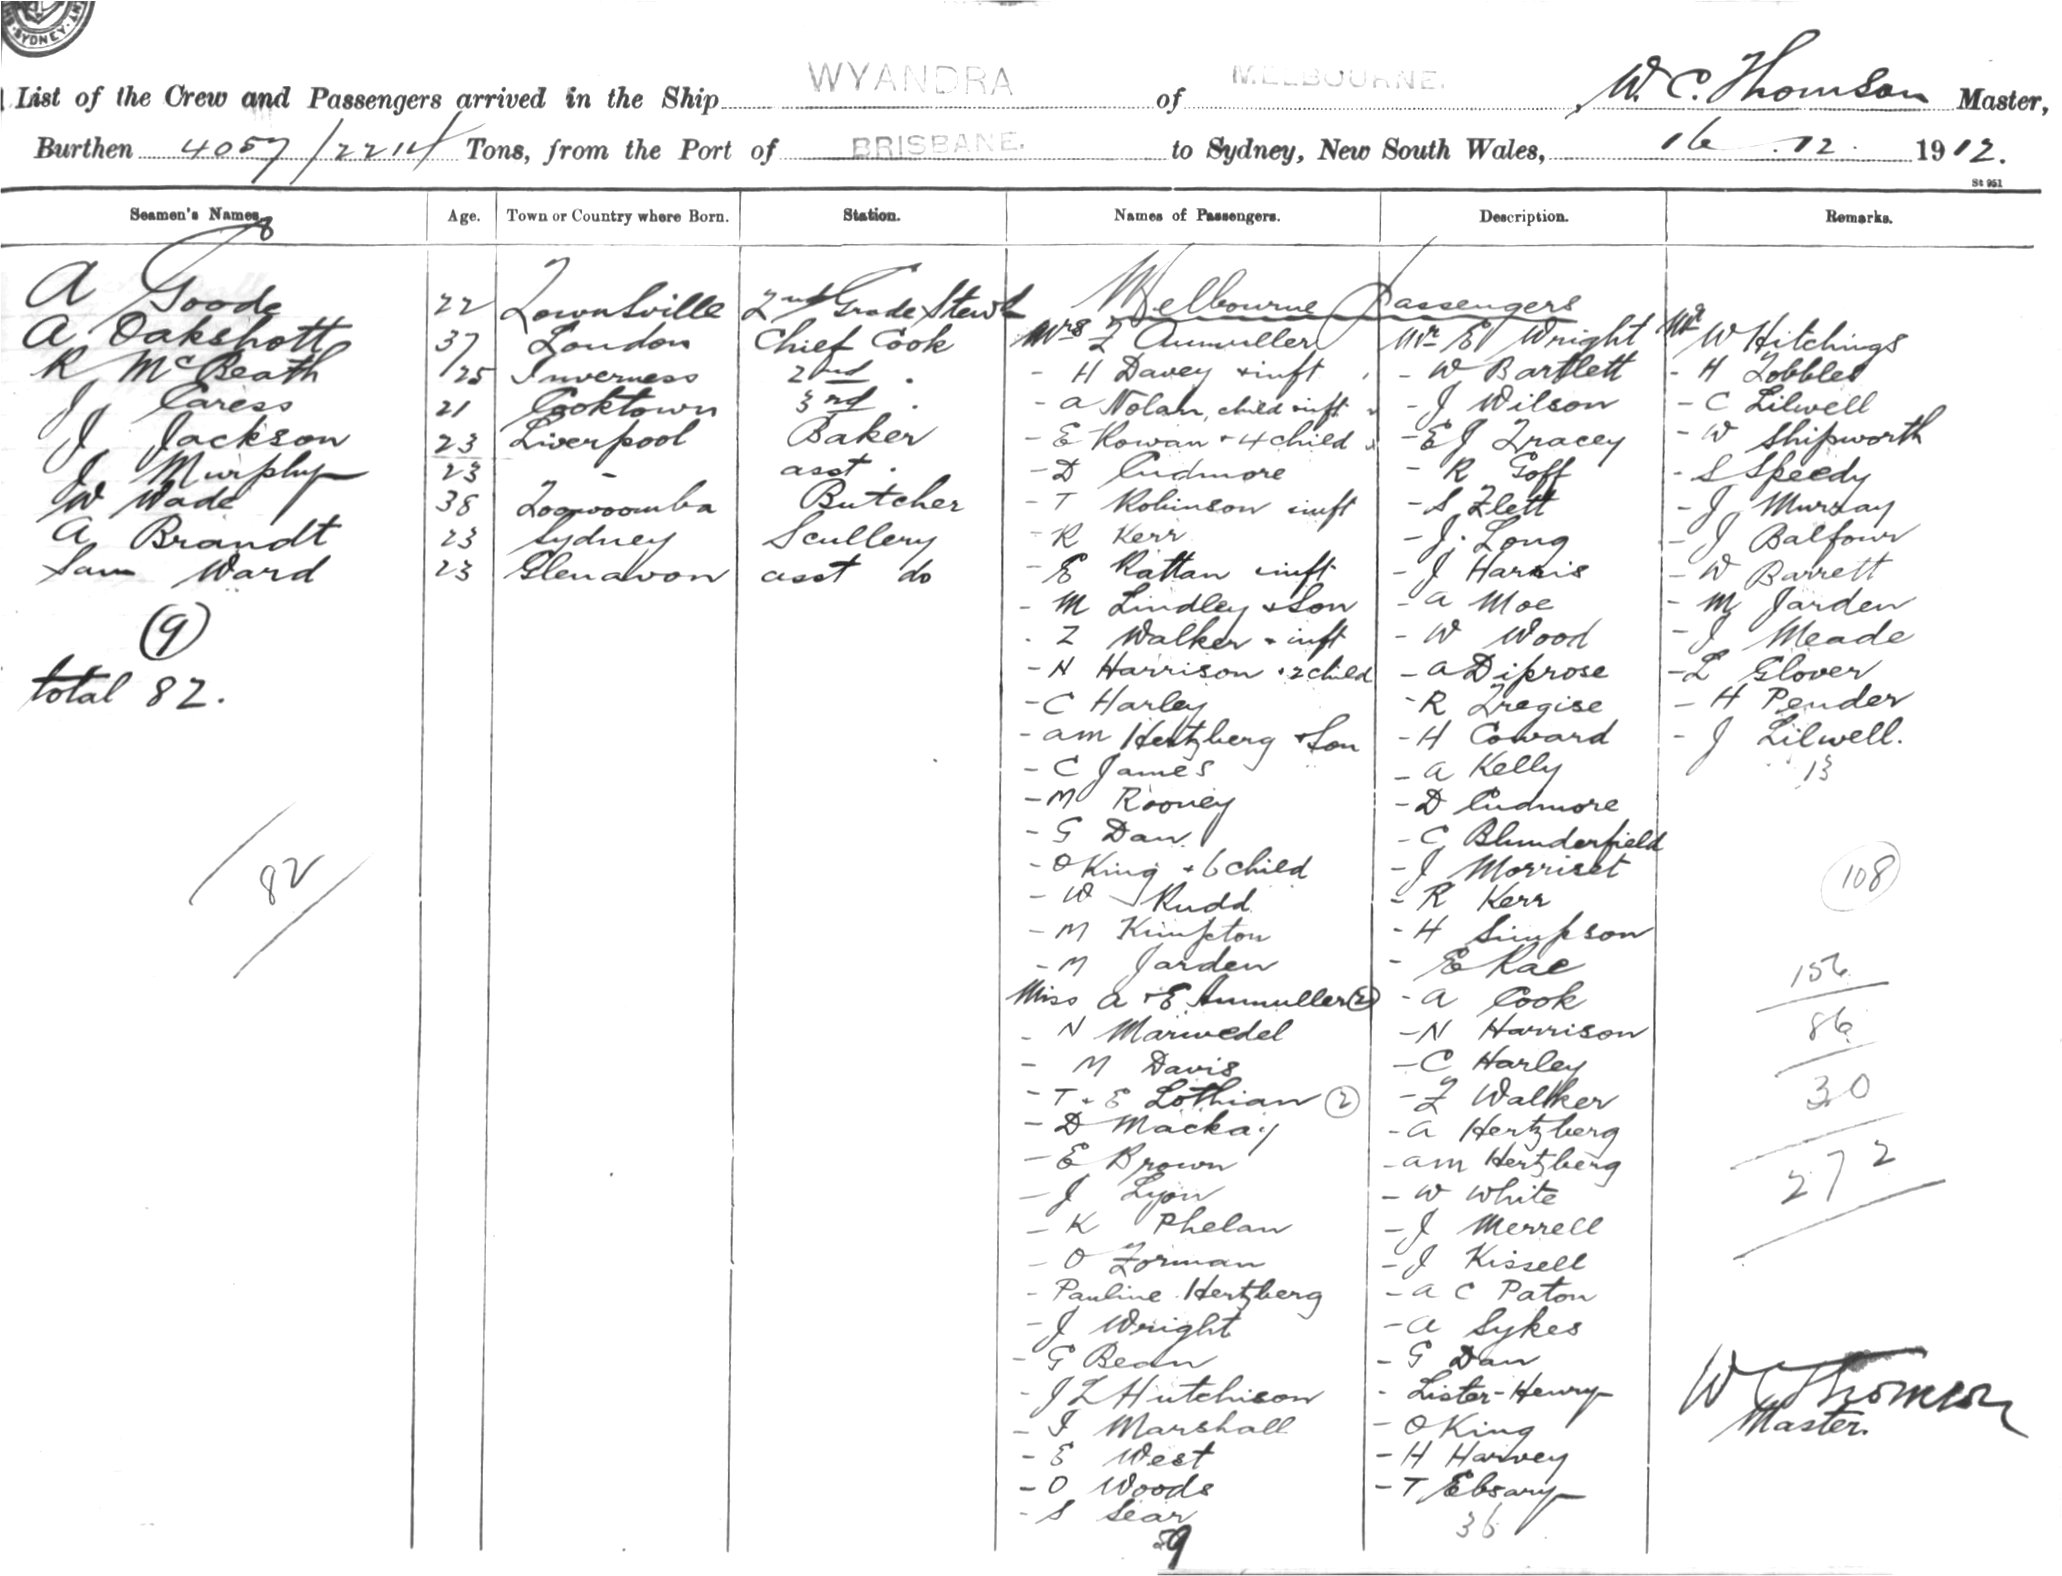 SYDNEY
List of the Crew and Passengers arrived in the Ship WYANDRA of MELBOURNE. , W. C. Thomson Master,
Burthen 4057/2214 Tons, from the Port of BRISBANE. to Sydney, New South Wales, 16.12.1912.
St 951
Seamen's Names Age. Town or Country where Born. Station. Names of Passengers. Description. Remarks.
8
Melbourne Passengers
A Goode 22 Townsville 2nd Grade Stewd
A Oakshott 37 London Chief Cook
R McBeath 25 Inverness 2nd .
J Caress 21 Cooktown 3rd .
J Jackson 23 Liverpool Baker
J Murphy 23 - asst .
W Wade 38 Toowoomba Butcher
A Brandt 23 Sydney Scullery
Sam Ward 23 Glenavon asst do
(9)
total 82.
82
Mrs F Aumuller
- H Davey + inft
- A Nolan, child inft
- E Rowan + 4 child
- D Cudmore
- T Robinson inft
- R Kerr
- E Rattan inft
- M Lindley + Son
- F Walker + inft
- N Harrison + 2 child
- C Harley
- AM Hertzberg + Son
- C James
- M Rooney
- G Dan
- O King + 6 child
- W Rudd
- M Kimpton
- M Jarden
Miss A + E Aumuller (2)
- N Marwedel
- M Davis
- T + E Lothian (2)
- D Mackay
- E Brown
- J Lyon
- K Phelan
- O Forman
- Pauline Hertzberg
- J Wright
- G Bean
- J F Hutchison
- I Marshall
- E West
- O Woods
- S Sear
59
Mr E Wright
- W Bartlett
- J Wilson
- E J Tracey
- R Goff
- S Flett
- J. Long
- J Harris
- A Moe
- W Wood
- A Diprose
- R Tregise
- H Coward
- A Kelly
- D Cudmore
- C Blunderfield
- J Morriset
- R Kerr
- H Simpson
- E Rae
- A Cook
- N Harrison
- C Harley
- F Walker
- A Hertzberg
- AM Hertzberg
- W White
- J Merrell
- J Kissell
- A C Paton
- A Sykes
- G Dan
- Lister-Henry
- O King
- H Harvey
- T Ebsary
36
Mr W Hitchings
- H Tobbles
- C Lilwell
- W Shipworth
- S Speedy
- J Murray
- J Balfour
- W Barrett
- M Jarden
- J Meade
- L Glover
- H Pender
- J Lilwell.
13
108
156
86
30
272
W C Thomson
Master.